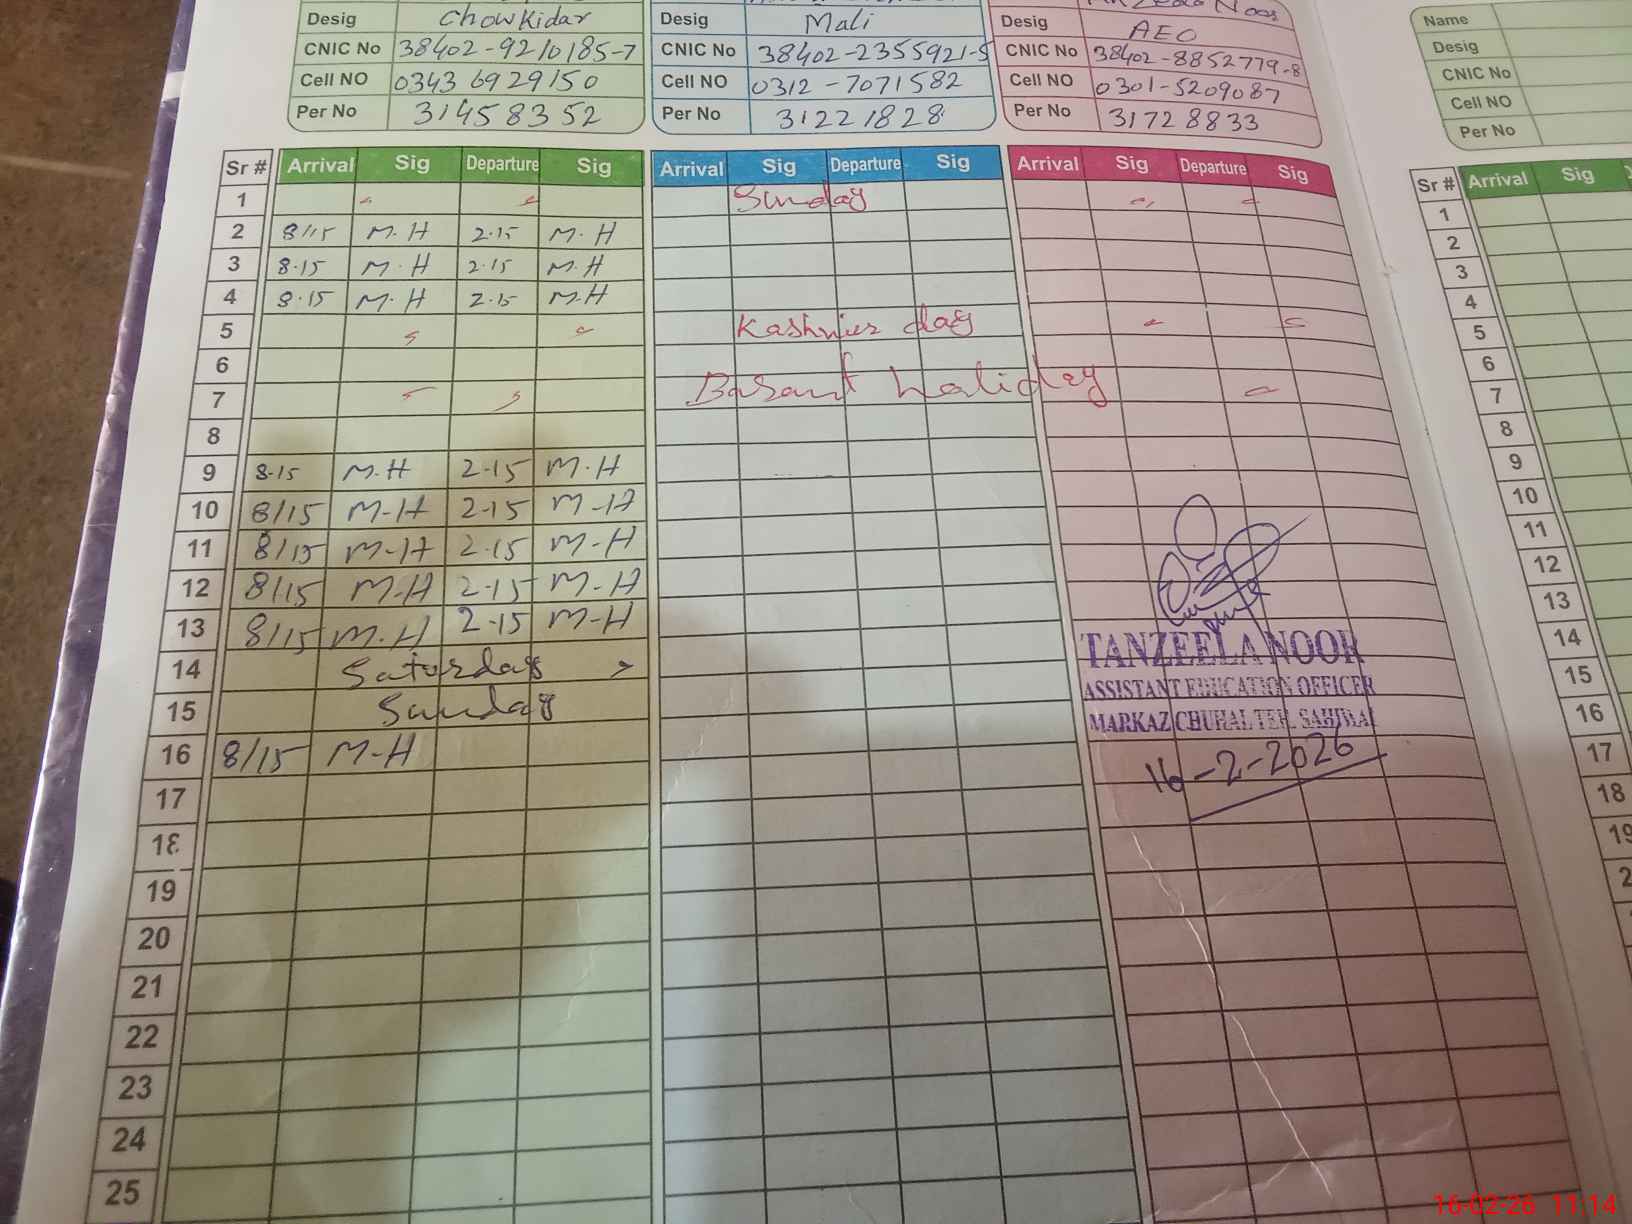 Desig Chowkidar
CNIC No 38402-9210185-7
Cell NO 0343 6929150
Per No 31458352
Desig Mali
CNIC No 38402-2355921-5
Cell NO 0312-7071582
Per No 31221828
Noor
Desig AEO
CNIC No 38402-8852779-8
Cell NO 0301-5209087
Per No 31728833
Name
Desig
CNIC No
Cell NO
Per No
Sr # Arrival Sig Departure Sig Arrival Sig Departure Sig Arrival Sig Departure Sig
1 Sunday
2 8/15 M.H 2.15 M.H
3 8.15 M.H 2.15 M.H
4 8.15 M.H 2.15 M.H
5 Kashmier day
6
7 Basant holiday
8
9 8.15 M.H 2.15 M.H
10 8/15 M-H 2.15 M-H
11 8/15 M-H 2.15 M-H
12 8/15 M-H 2.15 M-H
13 8/15 M.H 2.15 M-H
14 Saturday
15 Sunday
16 8/15 M-H
17
18
19
20
21
22
23
24
25
TANZEELA NOOR
ASSISTANT EDUCATION OFFICER
MARKAZ CHUHAL TEH. SAHIWAL
16-2-2026
Sr # Arrival Sig
1
2
3
4
5
6
7
8
9
10
11
12
13
14
15
16
17
18
19
16-02-26 11:14